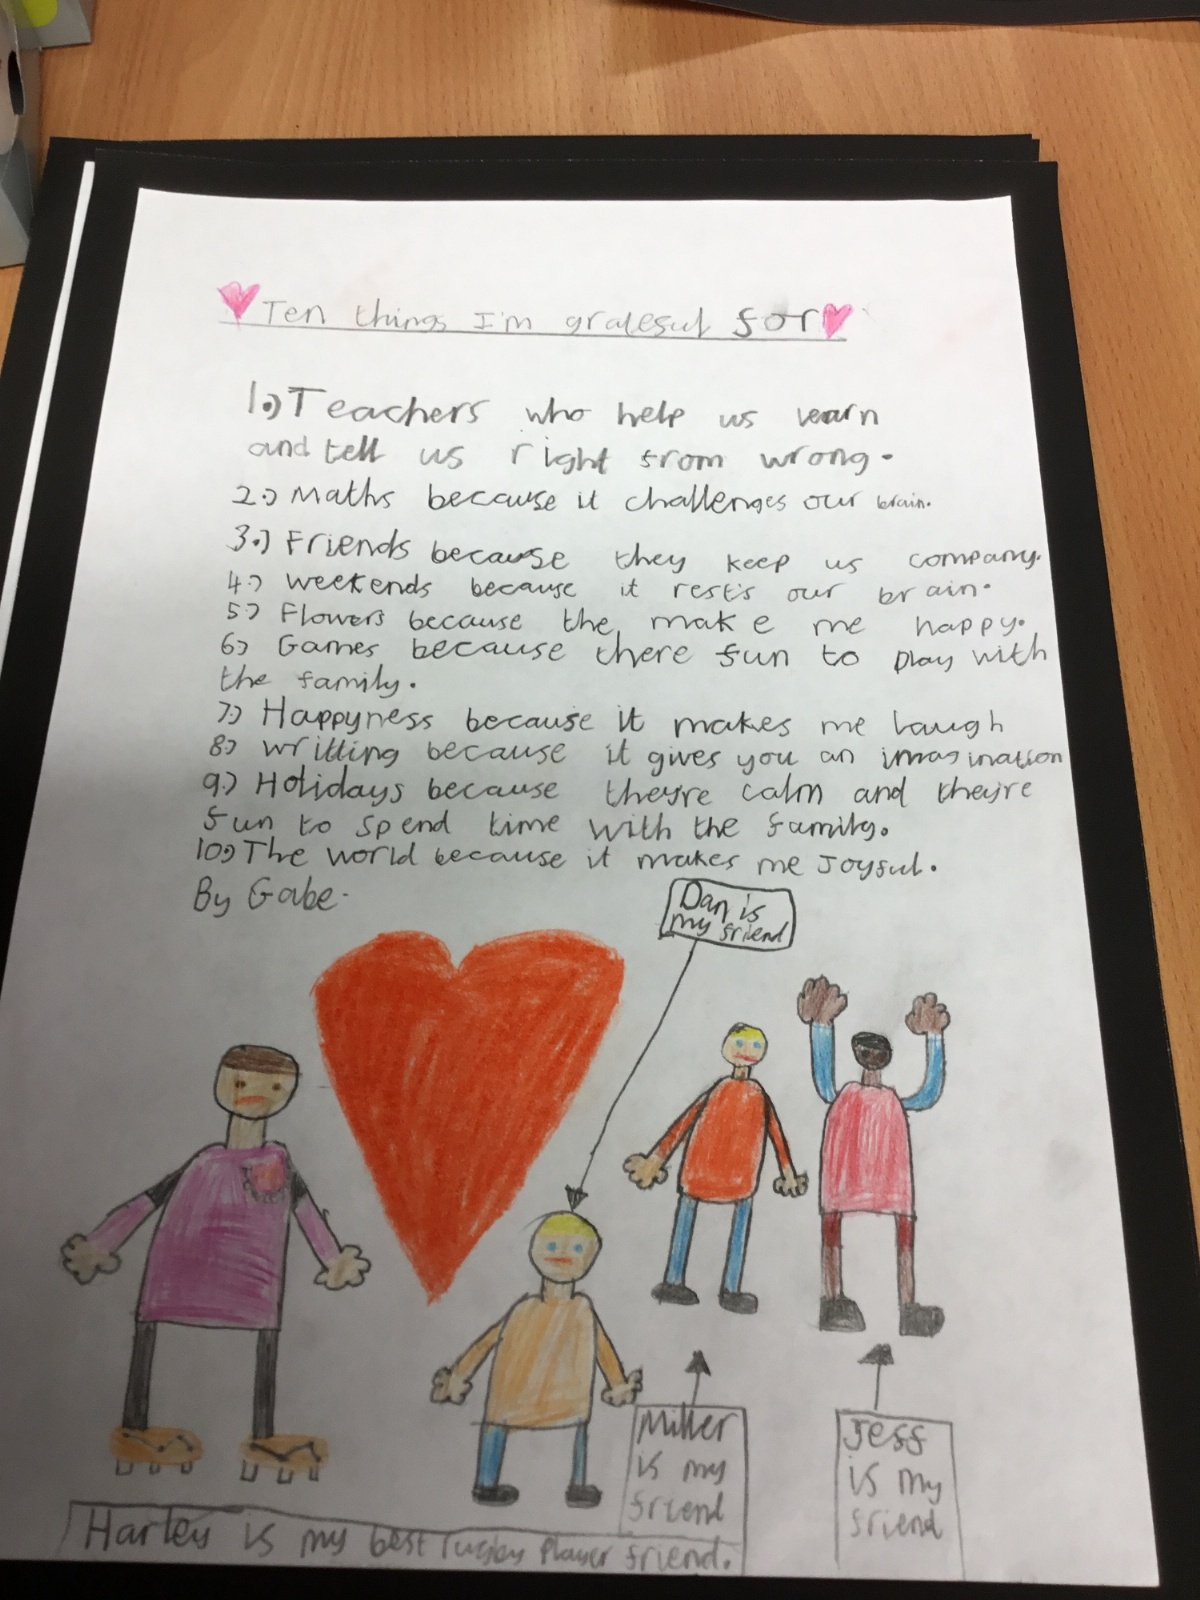 Ten things I'm grateful for
1.) Teachers who help us learn
and tell us right from wrong.
2.) Maths because it challenges our brain.
3.) Friends because they keep us company.
4.) weekends because it rest's our brain.
5.) Flowers because the make me happy.
6) Games because there fun to play with
the family.
7.) Happyness because it makes me laugh
8.) writting because it gives you an imagination
9.) Holidays because they're calm and they're
fun to spend time with the family.
10.) The world because it makes me Joyful.
By Gabe.
Dan is
my friend
Miller
is my
friend
Jeff
is my
friend
Harley is my best rugby player friend.